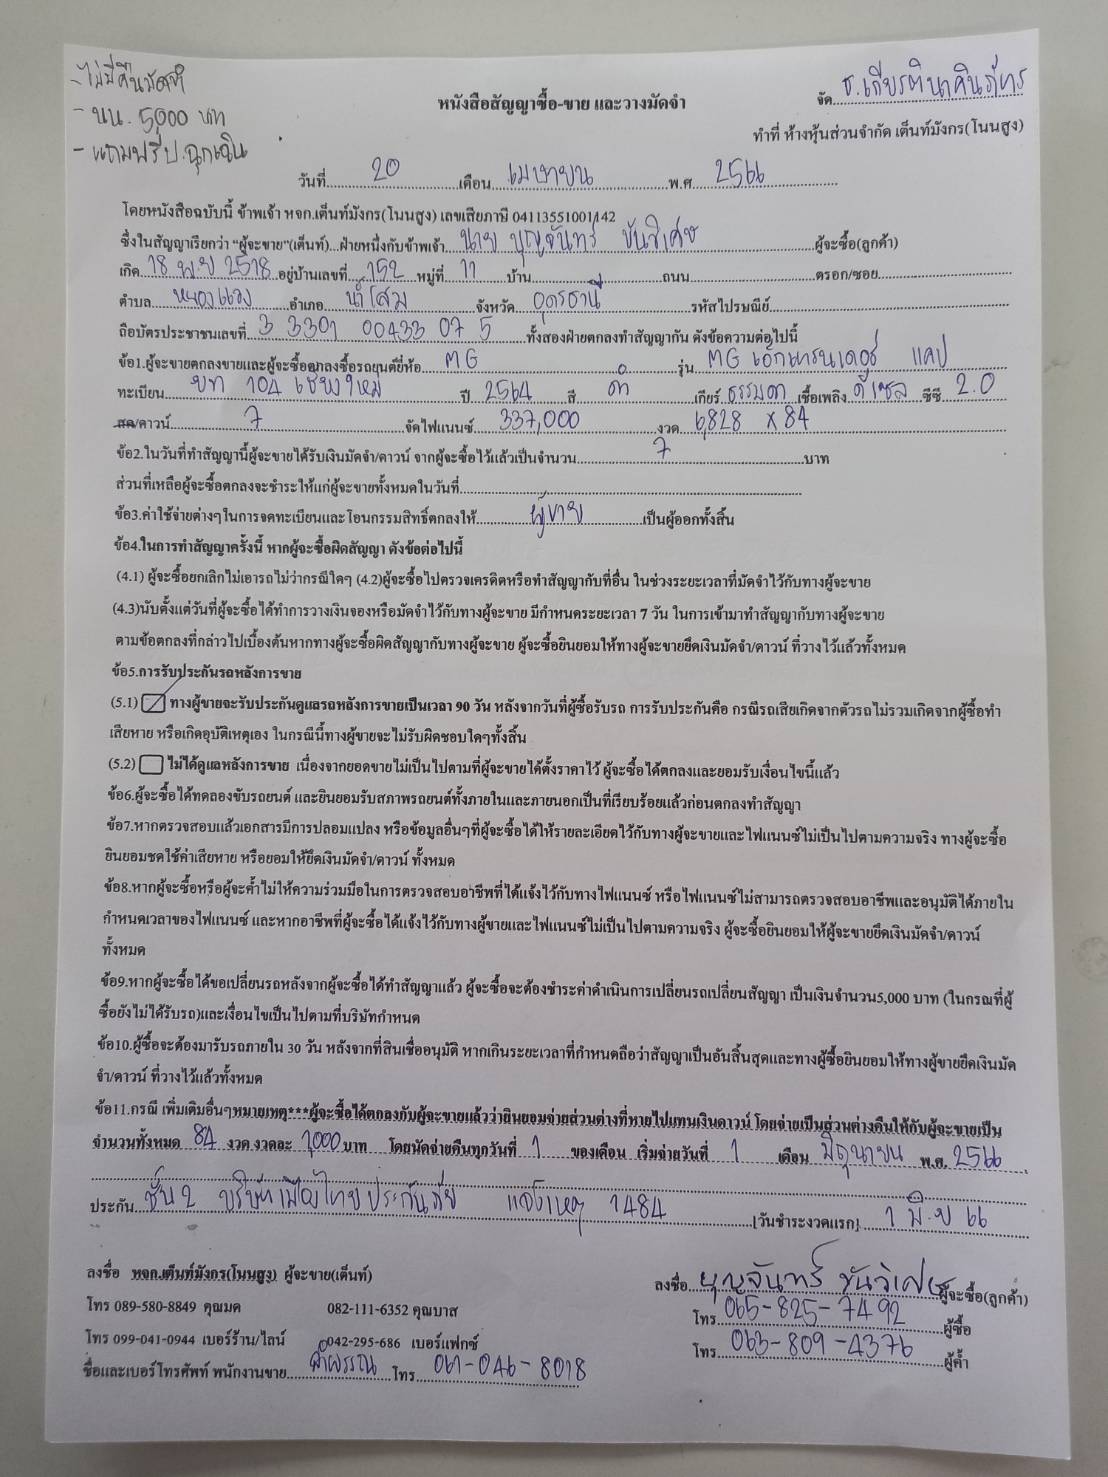 - ไม่มีคืนมัดจำ
- นน. 5000 บาท
- แถมฟรีป.ฉุกเฉิน
จัด ธ.เกียรตินาคินภัทร
หนังสือสัญญาซื้อ-ขาย และวางมัดจำ
ทำที่ ห้างหุ้นส่วนจำกัด เต็นท์มังกร(โนนสูง)
วันที่ 20 เดือน เมษายน พ.ศ. 2566
โดยหนังสือฉบับนี้ ข้าพเจ้า หจก.เต็นท์มังกร(โนนสูง) เลขเสียภาษี 04113551001142
ซึ่งในสัญญาเรียกว่า "ผู้จะขาย"(เต็นท์)...ฝ่ายหนึ่งกับข้าพเจ้า นาย บุญจันทร์ ขันวิเศษ ผู้จะซื้อ(ลูกค้า)
เกิด 18 พ.ย 2518 อยู่บ้านเลขที่ 152 หมู่ที่ 11 บ้าน ถนน ตรอก/ซอย
ตำบล หนองแวง อำเภอ น้ำโสม จังหวัด อุดรธานี รหัสไปรษณีย์
ถือบัตรประชาชนเลขที่ 3 3301 00433 07 5 ทั้งสองฝ่ายตกลงทำสัญญากัน ดังข้อความต่อไปนี้
ข้อ1.ผู้จะขายตกลงขายและผู้จะซื้อตกลงซื้อรถยนต์ยี่ห้อ MG รุ่น MG เอ็กเทรนเดอร์ แคป
ทะเบียน ยท 104 เชียงใหม่ ปี 2564 สี ดำ เกียร์ ธรรมดา เชื้อเพลิง ดีเซล ซีซี 2.0
สด/ดาวน์ 7 จัดไฟแนนซ์ 337,000 งวด 6,828 x 84
ข้อ2.ในวันที่ทำสัญญานี้ผู้จะขายได้รับเงินมัดจำ/ดาวน์ จากผู้จะซื้อไว้แล้วเป็นจำนวน 7 บาท
ส่วนที่เหลือผู้จะซื้อตกลงจะชำระให้แก่ผู้จะขายทั้งหมดในวันที่
ข้อ3.ค่าใช้จ่ายต่างๆในการจดทะเบียนและโอนกรรมสิทธิ์ตกลงให้ ผู้ขาย เป็นผู้ออกทั้งสิ้น
ข้อ4.ในการทำสัญญาครั้งนี้ หากผู้จะซื้อผิดสัญญา ดังข้อต่อไปนี้
(4.1) ผู้จะซื้อยกเลิกไม่เอารถไม่ว่ากรณีใดๆ (4.2)ผู้จะซื้อไปตรวจเครดิตหรือทำสัญญากับที่อื่น ในช่วงระยะเวลาที่มัดจำไว้กับทางผู้จะขาย
(4.3)นับตั้งแต่วันที่ผู้จะซื้อได้ทำการวางเงินจองหรือมัดจำไว้กับทางผู้จะขาย มีกำหนดระยะเวลา 7 วัน ในการเข้ามาทำสัญญากับทางผู้จะขาย
ตามข้อตกลงที่กล่าวไปเบื้องต้นหากทางผู้จะซื้อผิดสัญญากับทางผู้จะขาย ผู้จะซื้อยินยอมให้ทางผู้จะขายยึดเงินมัดจำ/ดาวน์ ที่วางไว้แล้วทั้งหมด
ข้อ5.การรับประกันรถหลังการขาย
(5.1) ทางผู้ขายจะรับประกันดูแลรถหลังการขายเป็นเวลา 90 วัน หลังจากวันที่ผู้ซื้อรับรถ การรับประกันคือ กรณีรถเสียเกิดจากตัวรถ ไม่รวมเกิดจากผู้ซื้อทำ
เสียหาย หรือเกิดอุบัติเหตุเอง ในกรณีนี้ทางผู้ขายจะไม่รับผิดชอบใดๆทั้งสิ้น
(5.2) ไม่ได้ดูแลหลังการขาย เนื่องจากยอดขายไม่เป็นไปตามที่ผู้จะขายได้ตั้งราคาไว้ ผู้จะซื้อได้ตกลงและยอมรับเงื่อนไขนี้แล้ว
ข้อ6.ผู้จะซื้อได้ทดลองขับรถยนต์ และยินยอมรับสภาพรถยนต์ทั้งภายในและภายนอกเป็นที่เรียบร้อยแล้วก่อนตกลงทำสัญญา
ข้อ7.หากตรวจสอบแล้วเอกสารมีการปลอมแปลง หรือข้อมูลอื่นๆที่ผู้จะซื้อได้ให้รายละเอียดไว้กับทางผู้จะขายและไฟแนนซ์ไม่เป็นไปตามความจริง ทางผู้จะซื้อ
ยินยอมชดใช้ค่าเสียหาย หรือยอมให้ยึดเงินมัดจำ/ดาวน์ ทั้งหมด
ข้อ8.หากผู้จะซื้อหรือผู้จะค้ำไม่ให้ความร่วมมือในการตรวจสอบอาชีพที่ได้แจ้งไว้กับทางไฟแนนซ์ หรือไฟแนนซ์ไม่สามารถตรวจสอบอาชีพและอนุมัติได้ภายใน
กำหนดเวลาของไฟแนนซ์ และหากอาชีพที่ผู้จะซื้อได้แจ้งไว้กับทางผู้ขายและไฟแนนซ์ไม่เป็นไปตามความจริง ผู้จะซื้อยินยอมให้ผู้จะขายยึดเงินมัดจำ/ดาวน์
ทั้งหมด
ข้อ9.หากผู้จะซื้อได้ขอเปลี่ยนรถหลังจากผู้จะซื้อได้ทำสัญญาแล้ว ผู้จะซื้อจะต้องชำระค่าดำเนินการเปลี่ยนรถเปลี่ยนสัญญา เป็นเงินจำนวน5,000 บาท (ในกรณที่ผู้
ซื้อยังไม่ได้รับรถ)และเงื่อนไขเป็นไปตามที่บริษัทกำหนด
ข้อ10.ผู้ซื้อจะต้องมารับรถภายใน 30 วัน หลังจากที่สินเชื่ออนุมัติ หากเกินระยะเวลาที่กำหนดถือว่าสัญญาเป็นอันสิ้นสุดและทางผู้ซื้อยินยอมให้ทางผู้ขายยึดเงินมัด
จำ/ดาวน์ ที่วางไว้แล้วทั้งหมด
ข้อ11.กรณี เพิ่มเติมอื่นๆหมายเหตุ***ผู้จะซื้อได้ตกลงกับผู้จะขายแล้วว่ายินยอมจ่ายส่วนต่างที่หายไปแทนเงินดาวน์ โดยจ่ายเป็นส่วนต่างคืนให้กับผู้จะขายเป็น
จำนวนทั้งหมด 84 งวด งวดละ 1,000 บาท โดยนัดจ่ายคืนทุกวันที่ 1 ของเดือน เริ่มจ่ายวันที่ 1 เดือน มิถุนายน พ.ศ. 2566
ประกัน ชั้น 2 บริษัทเมืองไทยประกันภัย แจ้งเหตุ 1484 [วันชำระงวดแรก] 1 มิ.ย 66
ลงชื่อ หจก.เต็นท์มังกร(โนนสูง) ผู้จะขาย(เต็นท์)
ลงชื่อ บุญจันทร์ ขันวิเศษ ผู้จะซื้อ(ลูกค้า)
โทร 089-580-8849 คุณมด 082-111-6352 คุณบาส
โทร 065-825-7492 ผู้ซื้อ
โทร 099-041-0944 เบอร์ร้าน/ไลน์ 042-295-686 เบอร์แฟกซ์
โทร 063-809-4376 ผู้ค้ำ
ชื่อและเบอร์โทรศัพท์ พนักงานขาย โทร 061-046-8018